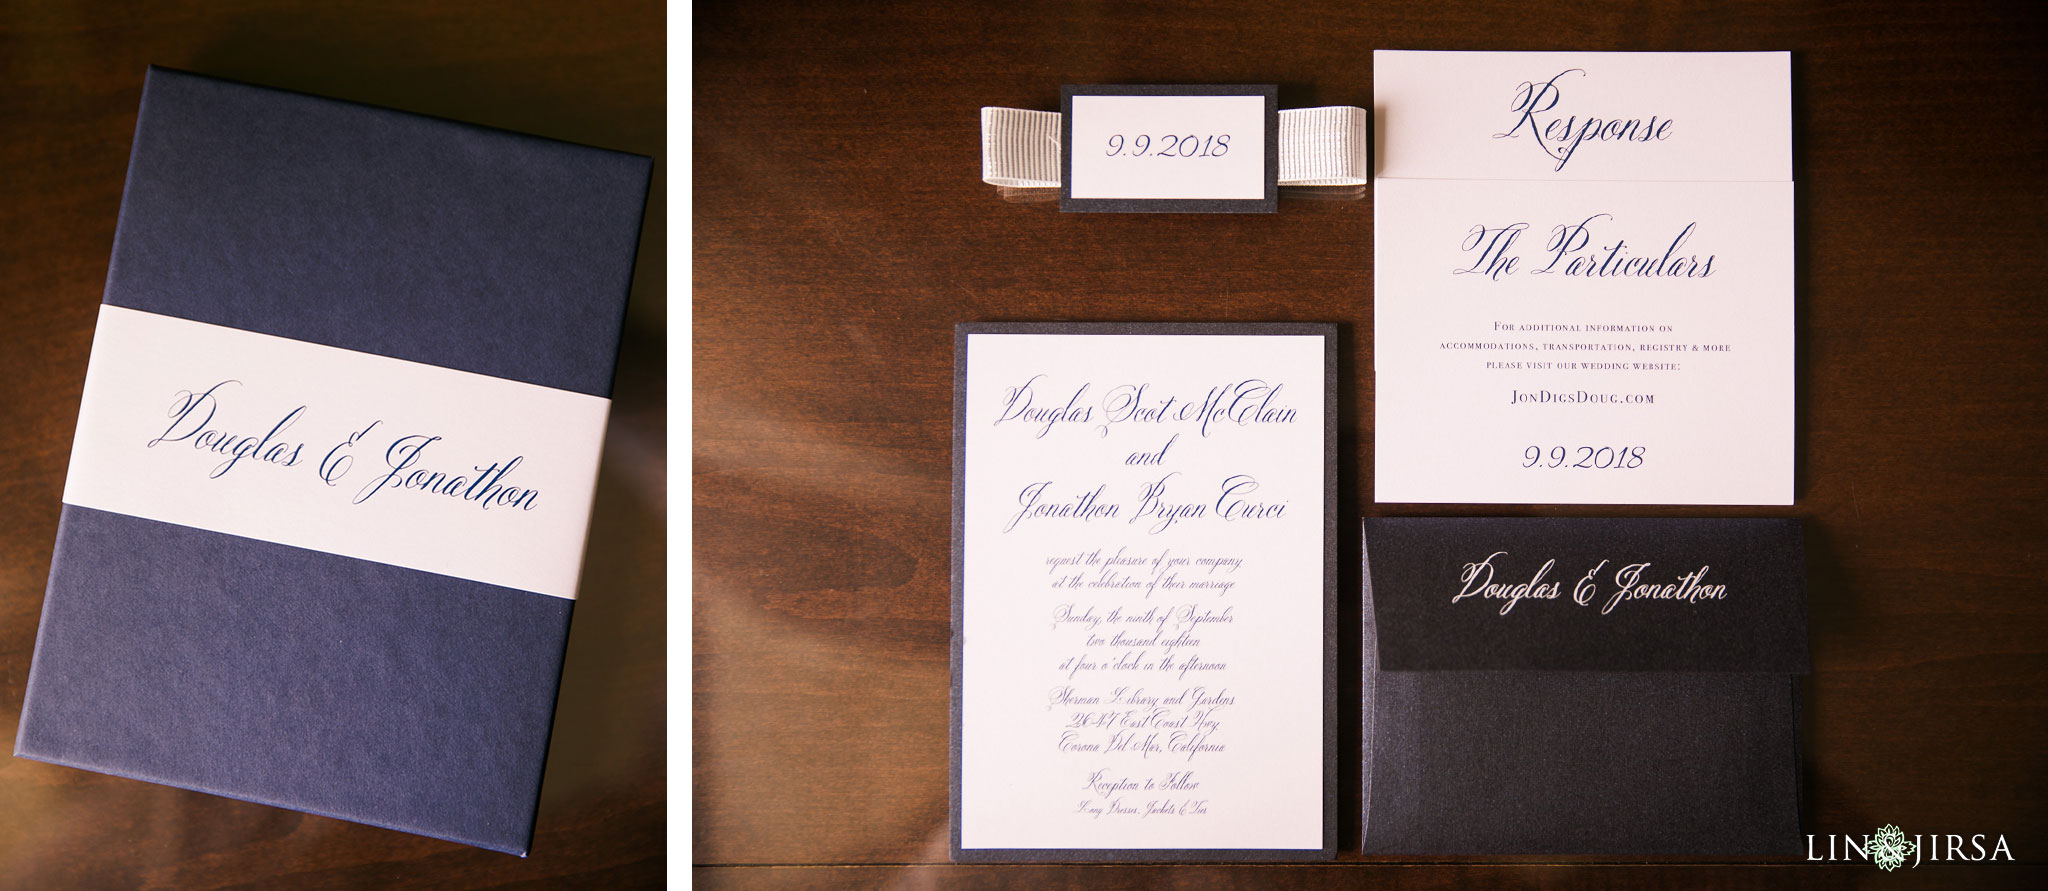 Douglas & Jonathon
9.9.2018
Response
The Particulars
For additional information on
accommodations, transportation, registry & more
please visit our wedding website:
JonDigsDoug.com
9.9.2018
Douglas Scot McClain
and
Jonathon Bryan Curci
request the pleasure of your company
at the celebration of their marriage
Sunday, the ninth of September
two thousand eighteen
at four o'clock in the afternoon
Sherman Library and Gardens
2647 East Coast Hwy
Corona Del Mar, California
Reception to Follow
Long Dresses, Jackets & Ties
Douglas & Jonathon
LIN & JIRSA